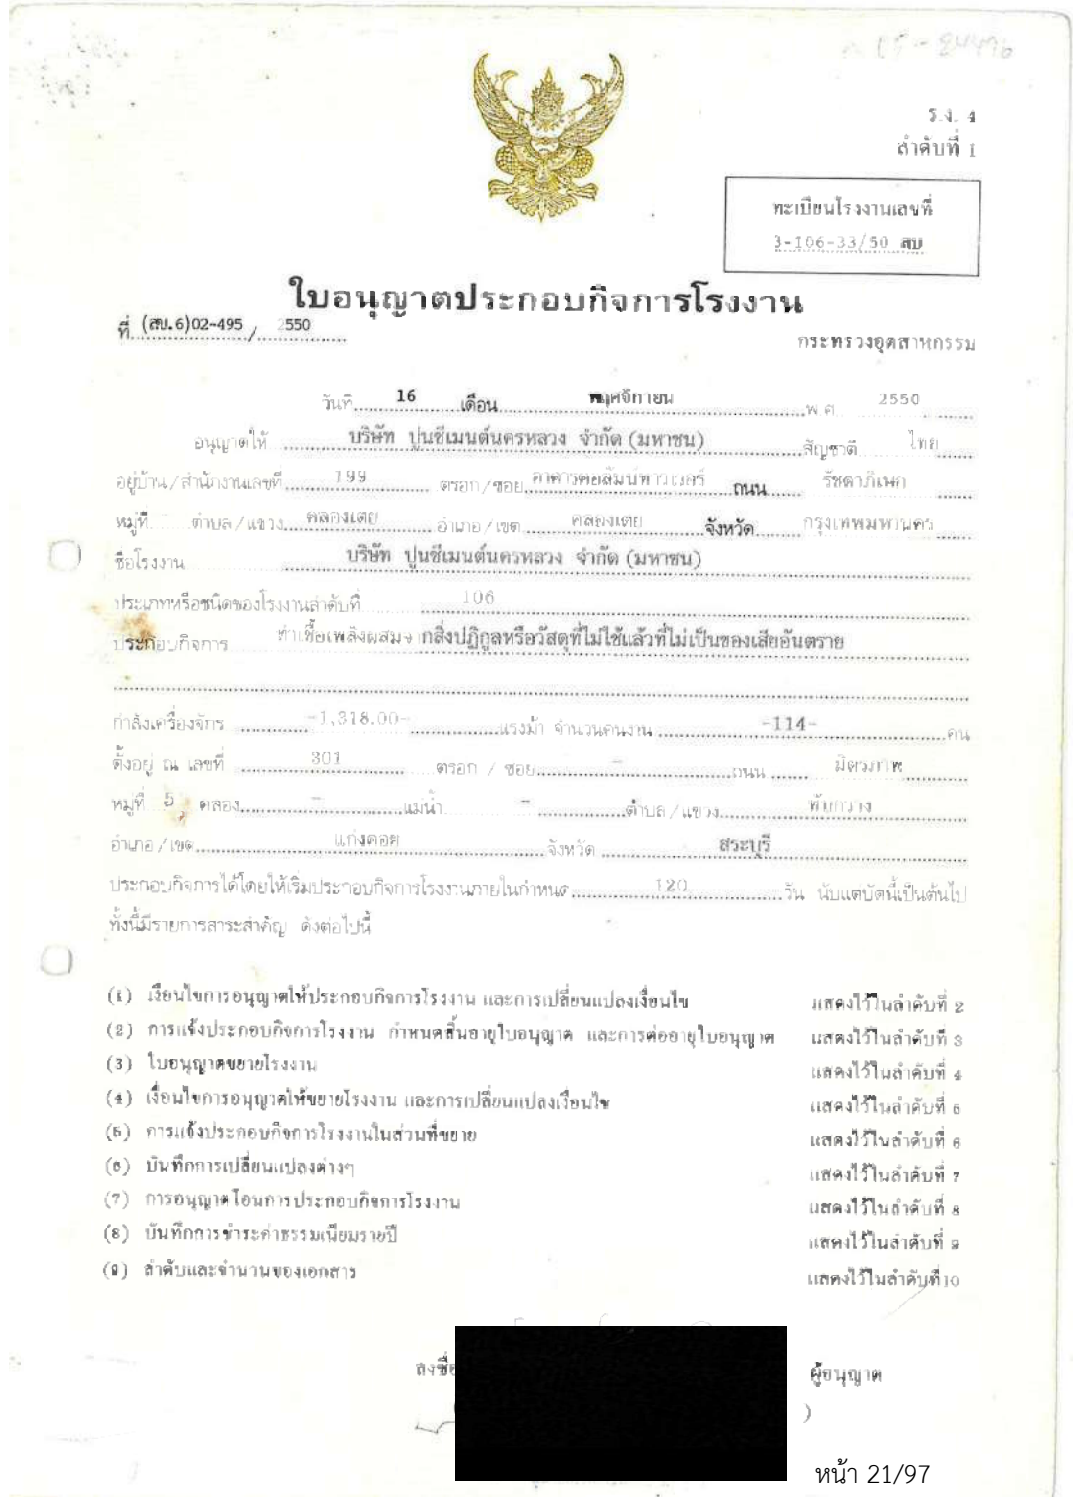 ร.ง. 4
ลำดับที่ 1
ทะเบียนโรงงานเลขที่
3-106-33/50 สบ
ใบอนุญาตประกอบกิจการโรงงาน
ที่ (สบ.6)02-495 / 2550
กระทรวงอุตสาหกรรม
วันที่ 16 เดือน พฤศจิกายน พ.ศ. 2550
อนุญาตให้ บริษัท ปูนซีเมนต์นครหลวง จำกัด (มหาชน) สัญชาติ ไทย
อยู่บ้าน/สำนักงานเลขที่ 199 ตรอก/ซอย อาคารคอลัมน์ทาวเวอร์ ถนน รัชดาภิเษก
หมู่ที่ ตำบล/แขวง คลองเตย อำเภอ/เขต คลองเตย จังหวัด กรุงเทพมหานคร
ชื่อโรงงาน บริษัท ปูนซีเมนต์นครหลวง จำกัด (มหาชน)
ประเภทหรือชนิดของโรงงานลำดับที่ 106
ประกอบกิจการ ทำเชื้อเพลิงผสมจากสิ่งปฏิกูลหรือวัสดุที่ไม่ใช้แล้วที่ไม่เป็นของเสียอันตราย
กำลังเครื่องจักร -1,318.00- แรงม้า จำนวนคนงาน -114- คน
ตั้งอยู่ ณ เลขที่ 301 ตรอก / ซอย - ถนน มิตรภาพ
หมู่ที่ 5 คลอง - แม่น้ำ - ตำบล/แขวง ทับกวาง
อำเภอ/เขต แก่งคอย จังหวัด สระบุรี
ประกอบกิจการได้โดยให้เริ่มประกอบกิจการโรงงานภายในกำหนด 120 วัน นับแต่บัดนี้เป็นต้นไป
ทั้งนี้มีรายการสาระสำคัญ ดังต่อไปนี้
(1) เงื่อนไขการอนุญาตให้ประกอบกิจการโรงงาน และการเปลี่ยนแปลงเงื่อนไข แสดงไว้ในลำดับที่ 2
(2) การแจ้งประกอบกิจการโรงงาน กำหนดสิ้นอายุใบอนุญาต และการต่ออายุใบอนุญาต แสดงไว้ในลำดับที่ 3
(3) ใบอนุญาตขยายโรงงาน แสดงไว้ในลำดับที่ 4
(4) เงื่อนไขการอนุญาตให้ขยายโรงงาน และการเปลี่ยนแปลงเงื่อนไข แสดงไว้ในลำดับที่ 5
(5) การแจ้งประกอบกิจการโรงงานในส่วนที่ขยาย แสดงไว้ในลำดับที่ 6
(6) บันทึกการเปลี่ยนแปลงต่างๆ แสดงไว้ในลำดับที่ 7
(7) การอนุญาตโอนการประกอบกิจการโรงงาน แสดงไว้ในลำดับที่ 8
(8) บันทึกการชำระค่าธรรมเนียมรายปี แสดงไว้ในลำดับที่ 9
(9) ลำดับและจำนวนของเอกสาร แสดงไว้ในลำดับที่ 10
ลงชื่อ ผู้อนุญาต
)
หน้า 21/97